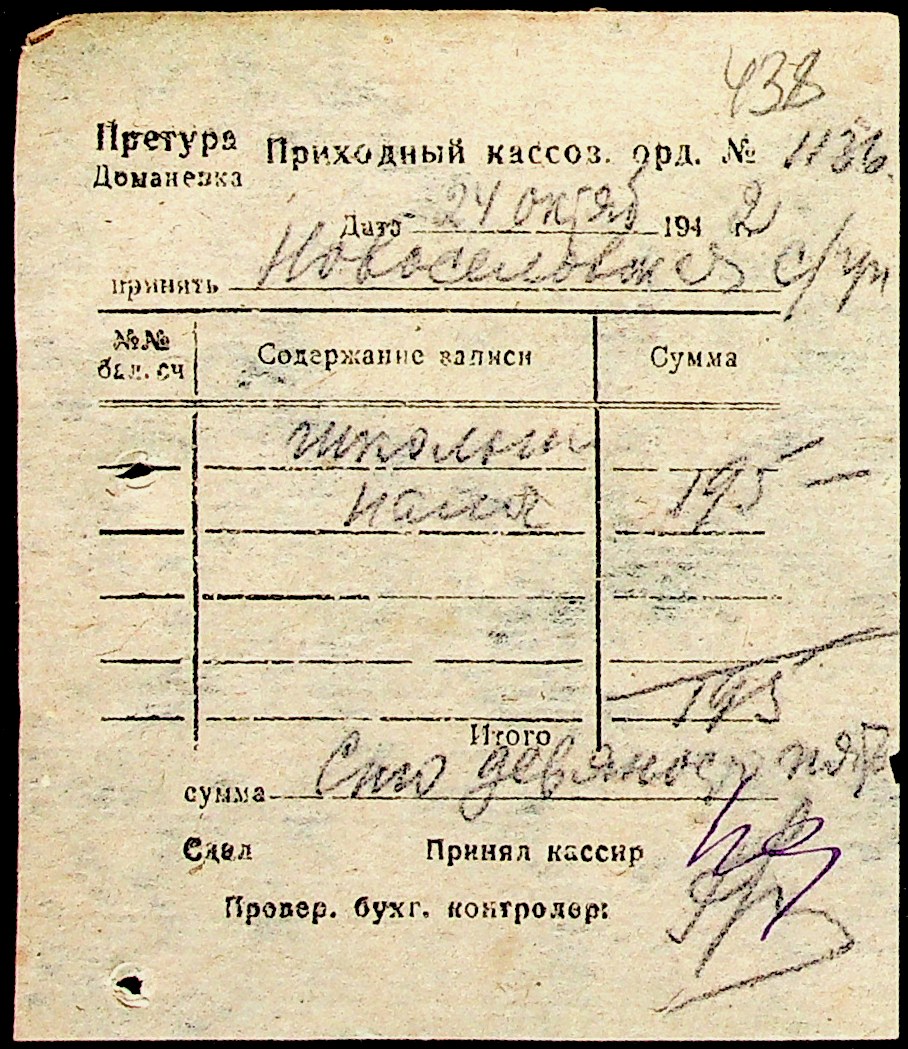 438
Претура
Доманевка
Приходный кассов. орд. № 1136.
Дата 24 октяб 1942 г.
принять Новоселовская с/упр
№№ бал. сч
Содержание записи
Сумма
школьн
195 —
195
Итого
сумма Сто девяносто пять
Сдал Принял кассир
Провер. бухг. контролер: